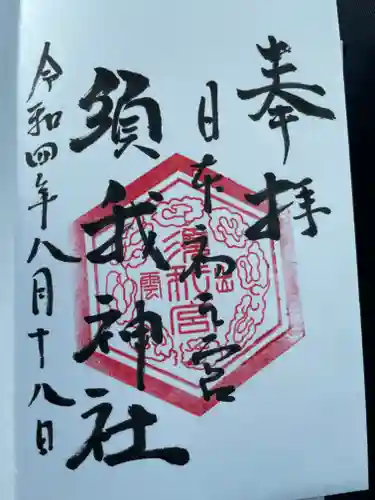 奉拝
日本初之宮
須我神社
令和四年八月十八日
須我宮
雲
出